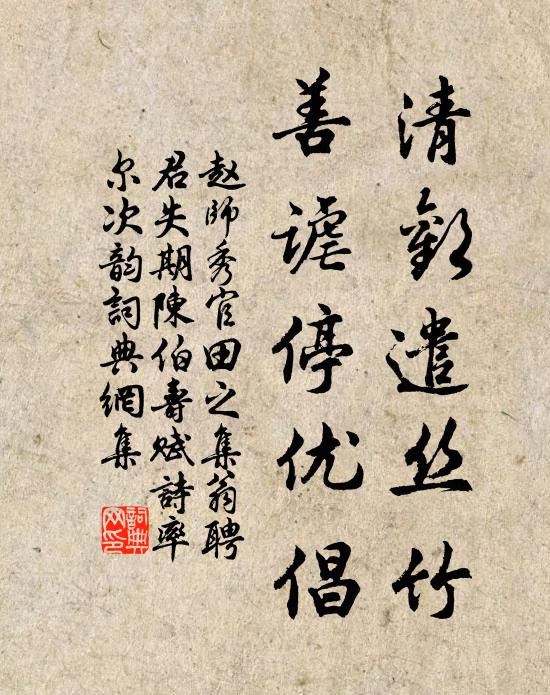 清歡遣丝竹
善谑停优倡
赵師秀官田之集翁聘
君失期陳伯壽赋詩率
尔次韵詞典網集
詞典网印